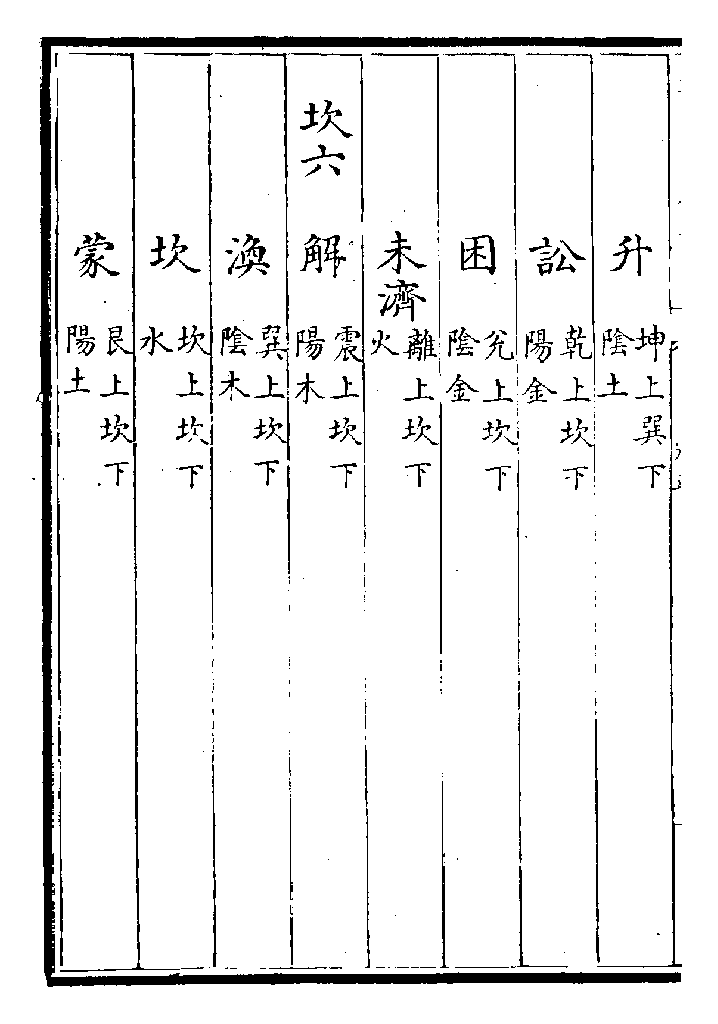 升 坤上巽下 陰土
訟 乾上坎下 陽金
困 兊上坎下 陰金
未濟 離上坎下 火
坎六 解 震上坎下 陽木
渙 巽上坎下 陰木
坎 坎上坎下 水
蒙 艮上坎下 陽土